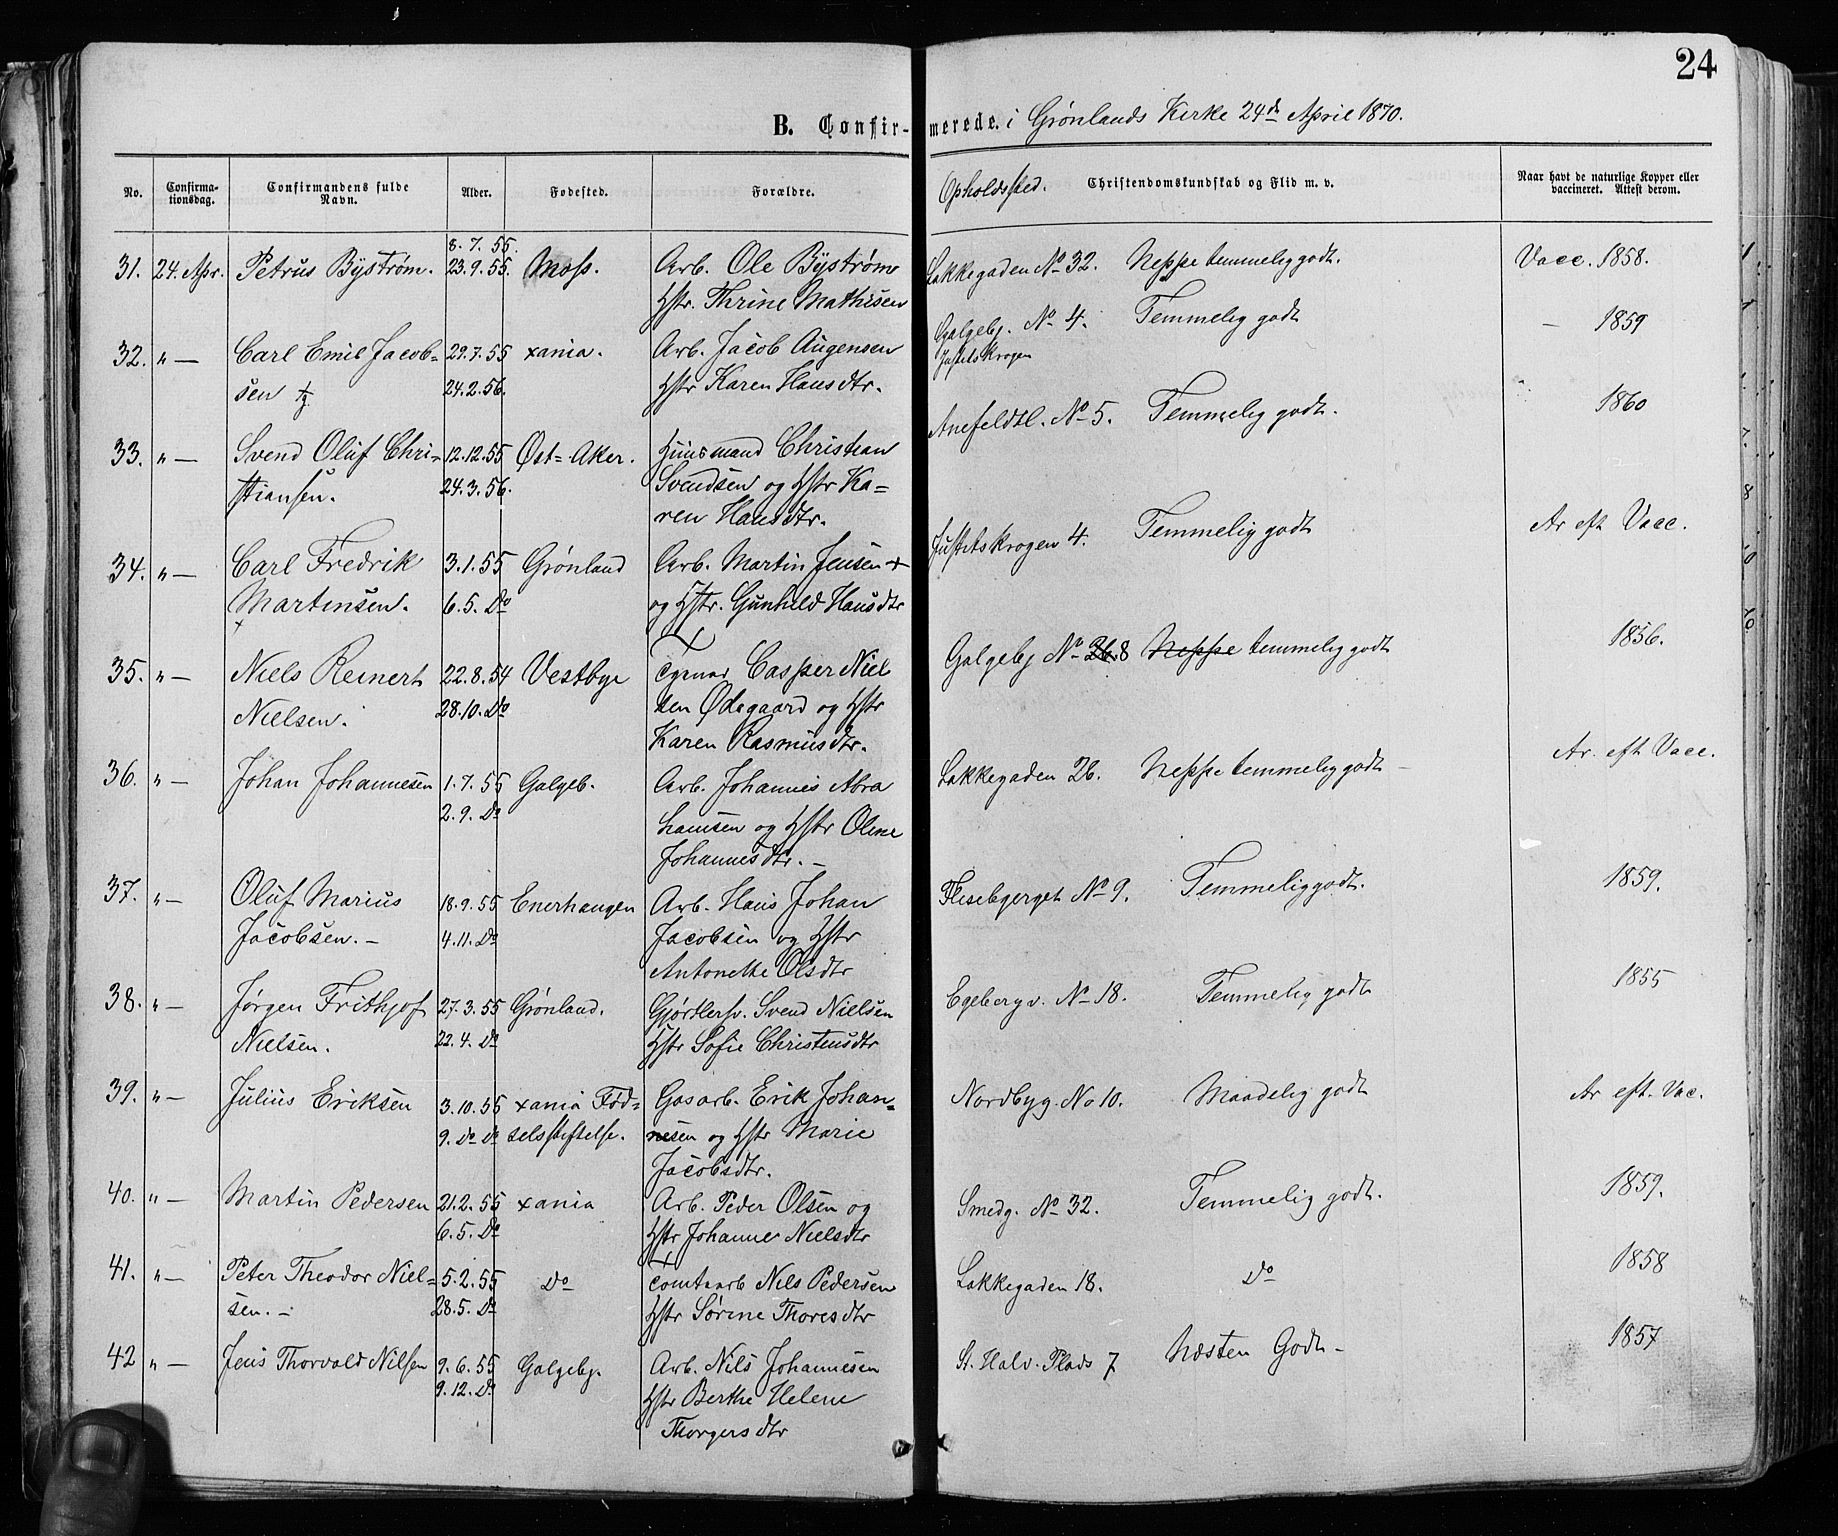 24
B. Confirmerede. i Grønlands Kirke 24de April 1870.
No. Confirmationsdag. Confirmandens fulde Navn. Alder. Fødested. Forældre. Opholdssted. Christendomskundskab og Flid m. v. Naar havt de naturlige Kopper eller vaccineret. Attest derom.
8. 7. 55.
31. 24. Apr. Petrus Byström. 23.9.55. Moss. Arb. Ole Byströme Lakkegaden No 32. Neppe temmelig godt. Vacc. 1858.
Hstr. Thrine Mathisen
32. " — Carl Emil Jacob= 29.7.55 xania. Arb. Jacob Augensen Galgebj. No 4. Temmelig godt — 1859
sen 24.2.56. Hstr Karen Hansdtr. Justitskrogen
33. " — Svend Oluf Chri= 12.12.55 Øst=Aker. Huusmand Christian Anefeldtl. No 5. Temmelig godt. 1860
stiansen. 24.3.56. Svendsen og Hstr Ka=
ren Hansdtr.
34. " — Carl Fredrik 3.1.55 Grønland Arb. Martin Jensen + Justitskrogen 4. Temmelig godt Ar eft Vacc.
Martinsen. 6.5. Do og Hstr. Gunhild Hansdtr
+
35. " — Niels Reinert 22.8.54 Vestbye Casper Niel Galgebj No 26. 8 Neppe temmelig godt 1856.
Nielsen. 28.10. Do sen Ødegaard og Hstr
Karen Rasmusdtr.
36. " — Johan Johannesen 1.7.55 Galgeb. Arb. Johannes Abra Lakkegaden 26. Neppe temmelig godt — Ar. eft Vacc.
2.9. Do hamsen og Hstr Oline
Johannesdtr. —
37. " — Oluf Marius 18.9.55 Enerhaugen Arb. Hans Johan Flisebjerget No 9. Temmelig godt. 1859.
Jacobsen. — 4.11. Do Jacobsen og Hstr
Antonette Olsdtr
38. " — Jørgen Frithjof 27.3.55 Grønland. Gjørtlersv. Svend Nielsen Egebergv. No 18. Temmelig godt 1855
Nielsen. 22.4. Do Hstr Sofie Christensdtr
39. " — Julius Eriksen 3.10.55 xania Fød= Gasarb. Erik Johan= Nordbyg. No 10. Maadelig godt Ar eft. Vac.
9. Do Do selsstiftelse. nesen og Hstr Marie
Jacobsdtr.
40. " — Martin Pedersen 21.2.55 xania Arb. Peder Olsen og Smedg. No 32. Temmelig godt. 1859.
6.5. Do Hstr Johanne Nielsdtr
41. " — Peter Theodor Niel= 5.2.55 Do Nils Pedersen Lakkegaden 18. Do 1858
sen. — 28.5. Do Hstr Sørine Thoresdtr
42 " — Jens Thorvald Nilsen 9.6.55 Galgebj. Arb. Nils Johannesen St. Halv. Plads 7 Næsten Godt — 1857
9.12. Do Hstr Berthe Helene
Thorgersdtr